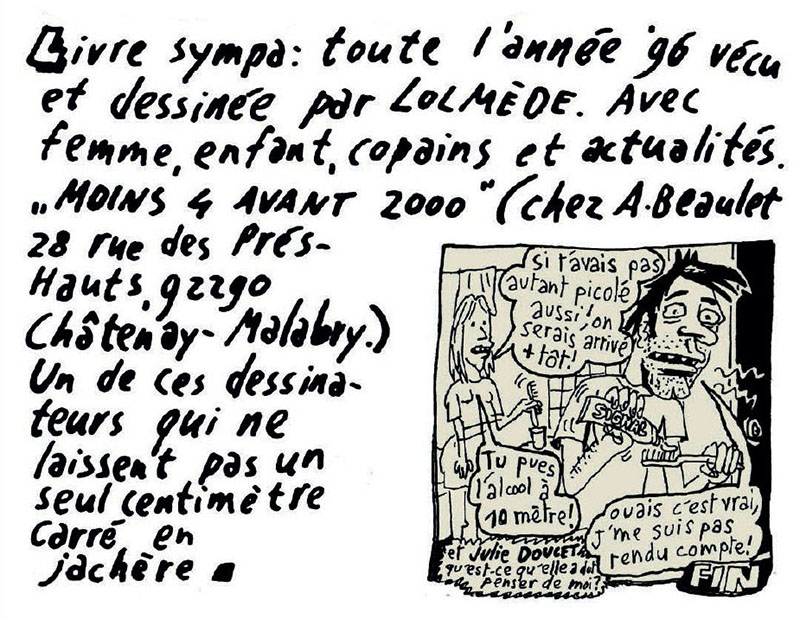 Livre sympa: toute l'année '96 vécu
et dessinée par LOLMÈDE. Avec
femme, enfant, copains et actualités.
„MOINS 4 AVANT 2000" (chez A.Beaulet
28 rue des Prés-
Hauts, 92290
Châtenay-Malabry.)
Un de ces dessina-
teurs qui ne
laissent pas un
seul centimètre
carré en
jachère
si t'avais pas
autant picolé
aussi, on
serais arrivé
+ tôt!
SIGNAL
Tu pues
l'alcool à
10 mètre!
ouais c'est vrai,
j'me suis pas
rendu compte!
et Julie DOUCET
qu'est-ce qu'elle a dû
penser de moi?
FIN